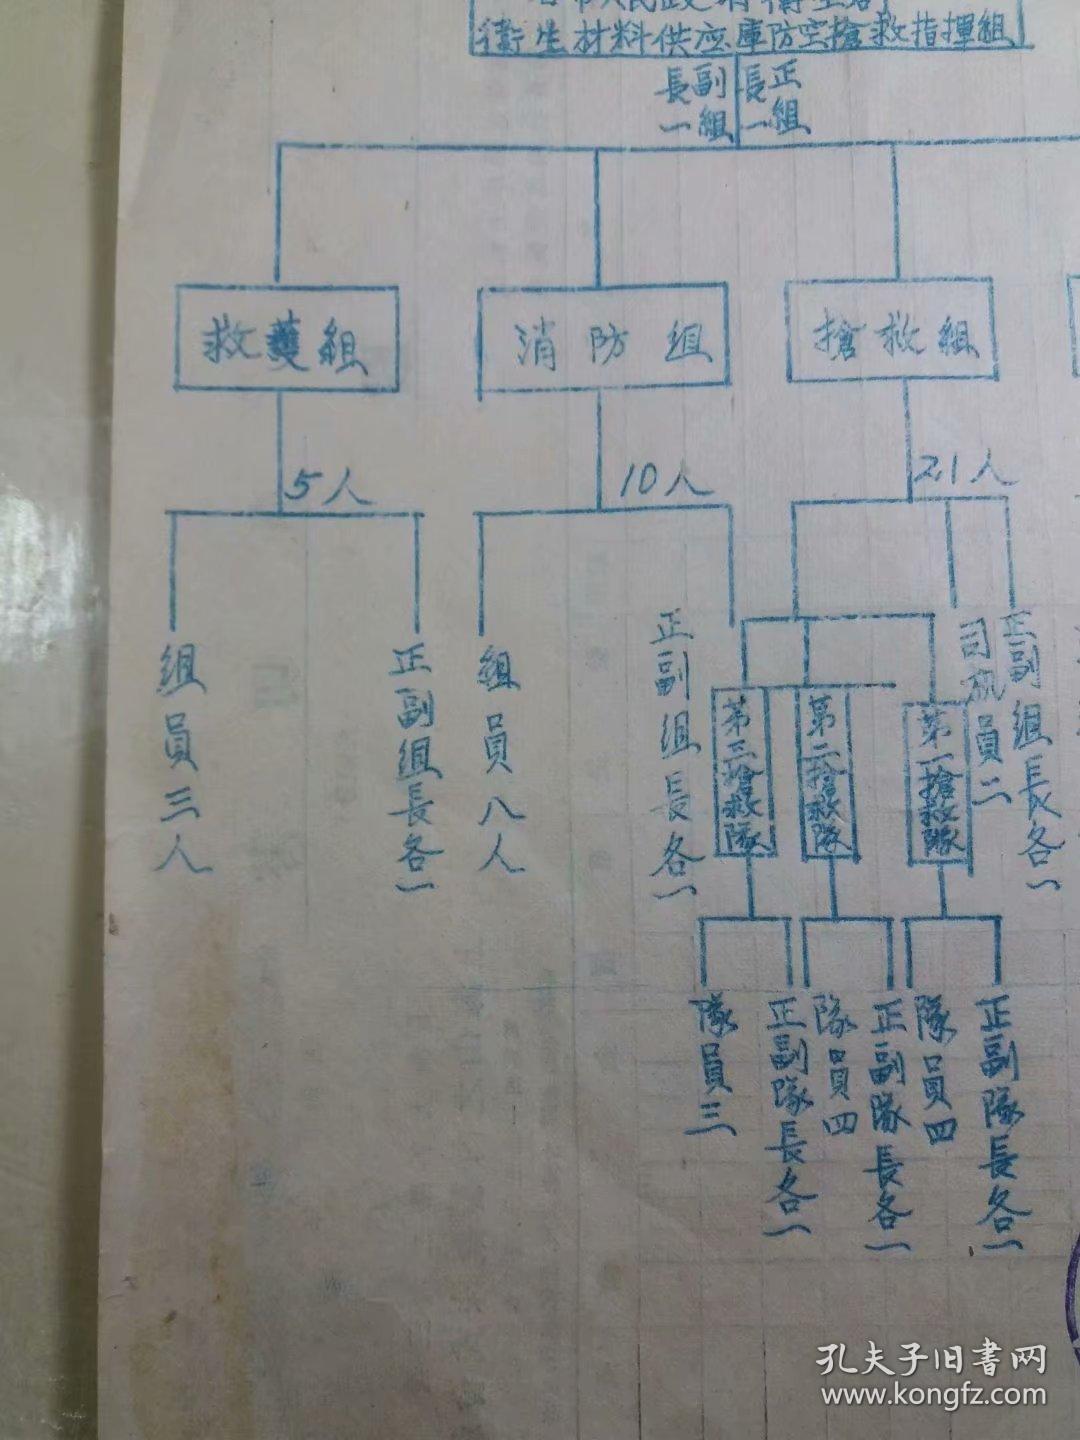 衛生材料供應庫防空搶救指揮組
正組長一
副組長一
搶救組
消防組
救護組
21人
10人
5人
正副組長各一
司机員二
第一搶救隊
第二搶救隊
第三搶救隊
正副組長各一
組員八人
正副組長各一
組員三人
正副隊長各一
隊員四
正副隊長各一
隊員四
正副隊長各一
隊員三
孔夫子旧書网
www.kongfz.com